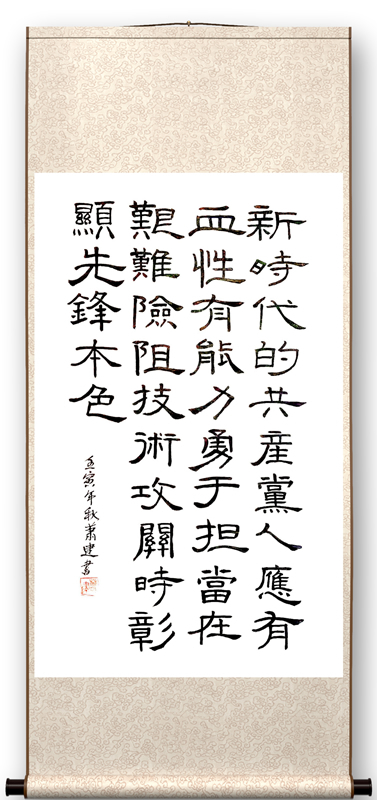 新時代的共産黨人應有
血性有能力勇于担當在
艱難險阻技術攻關時彰
顯先鋒本色
壬寅年秋蕭建書